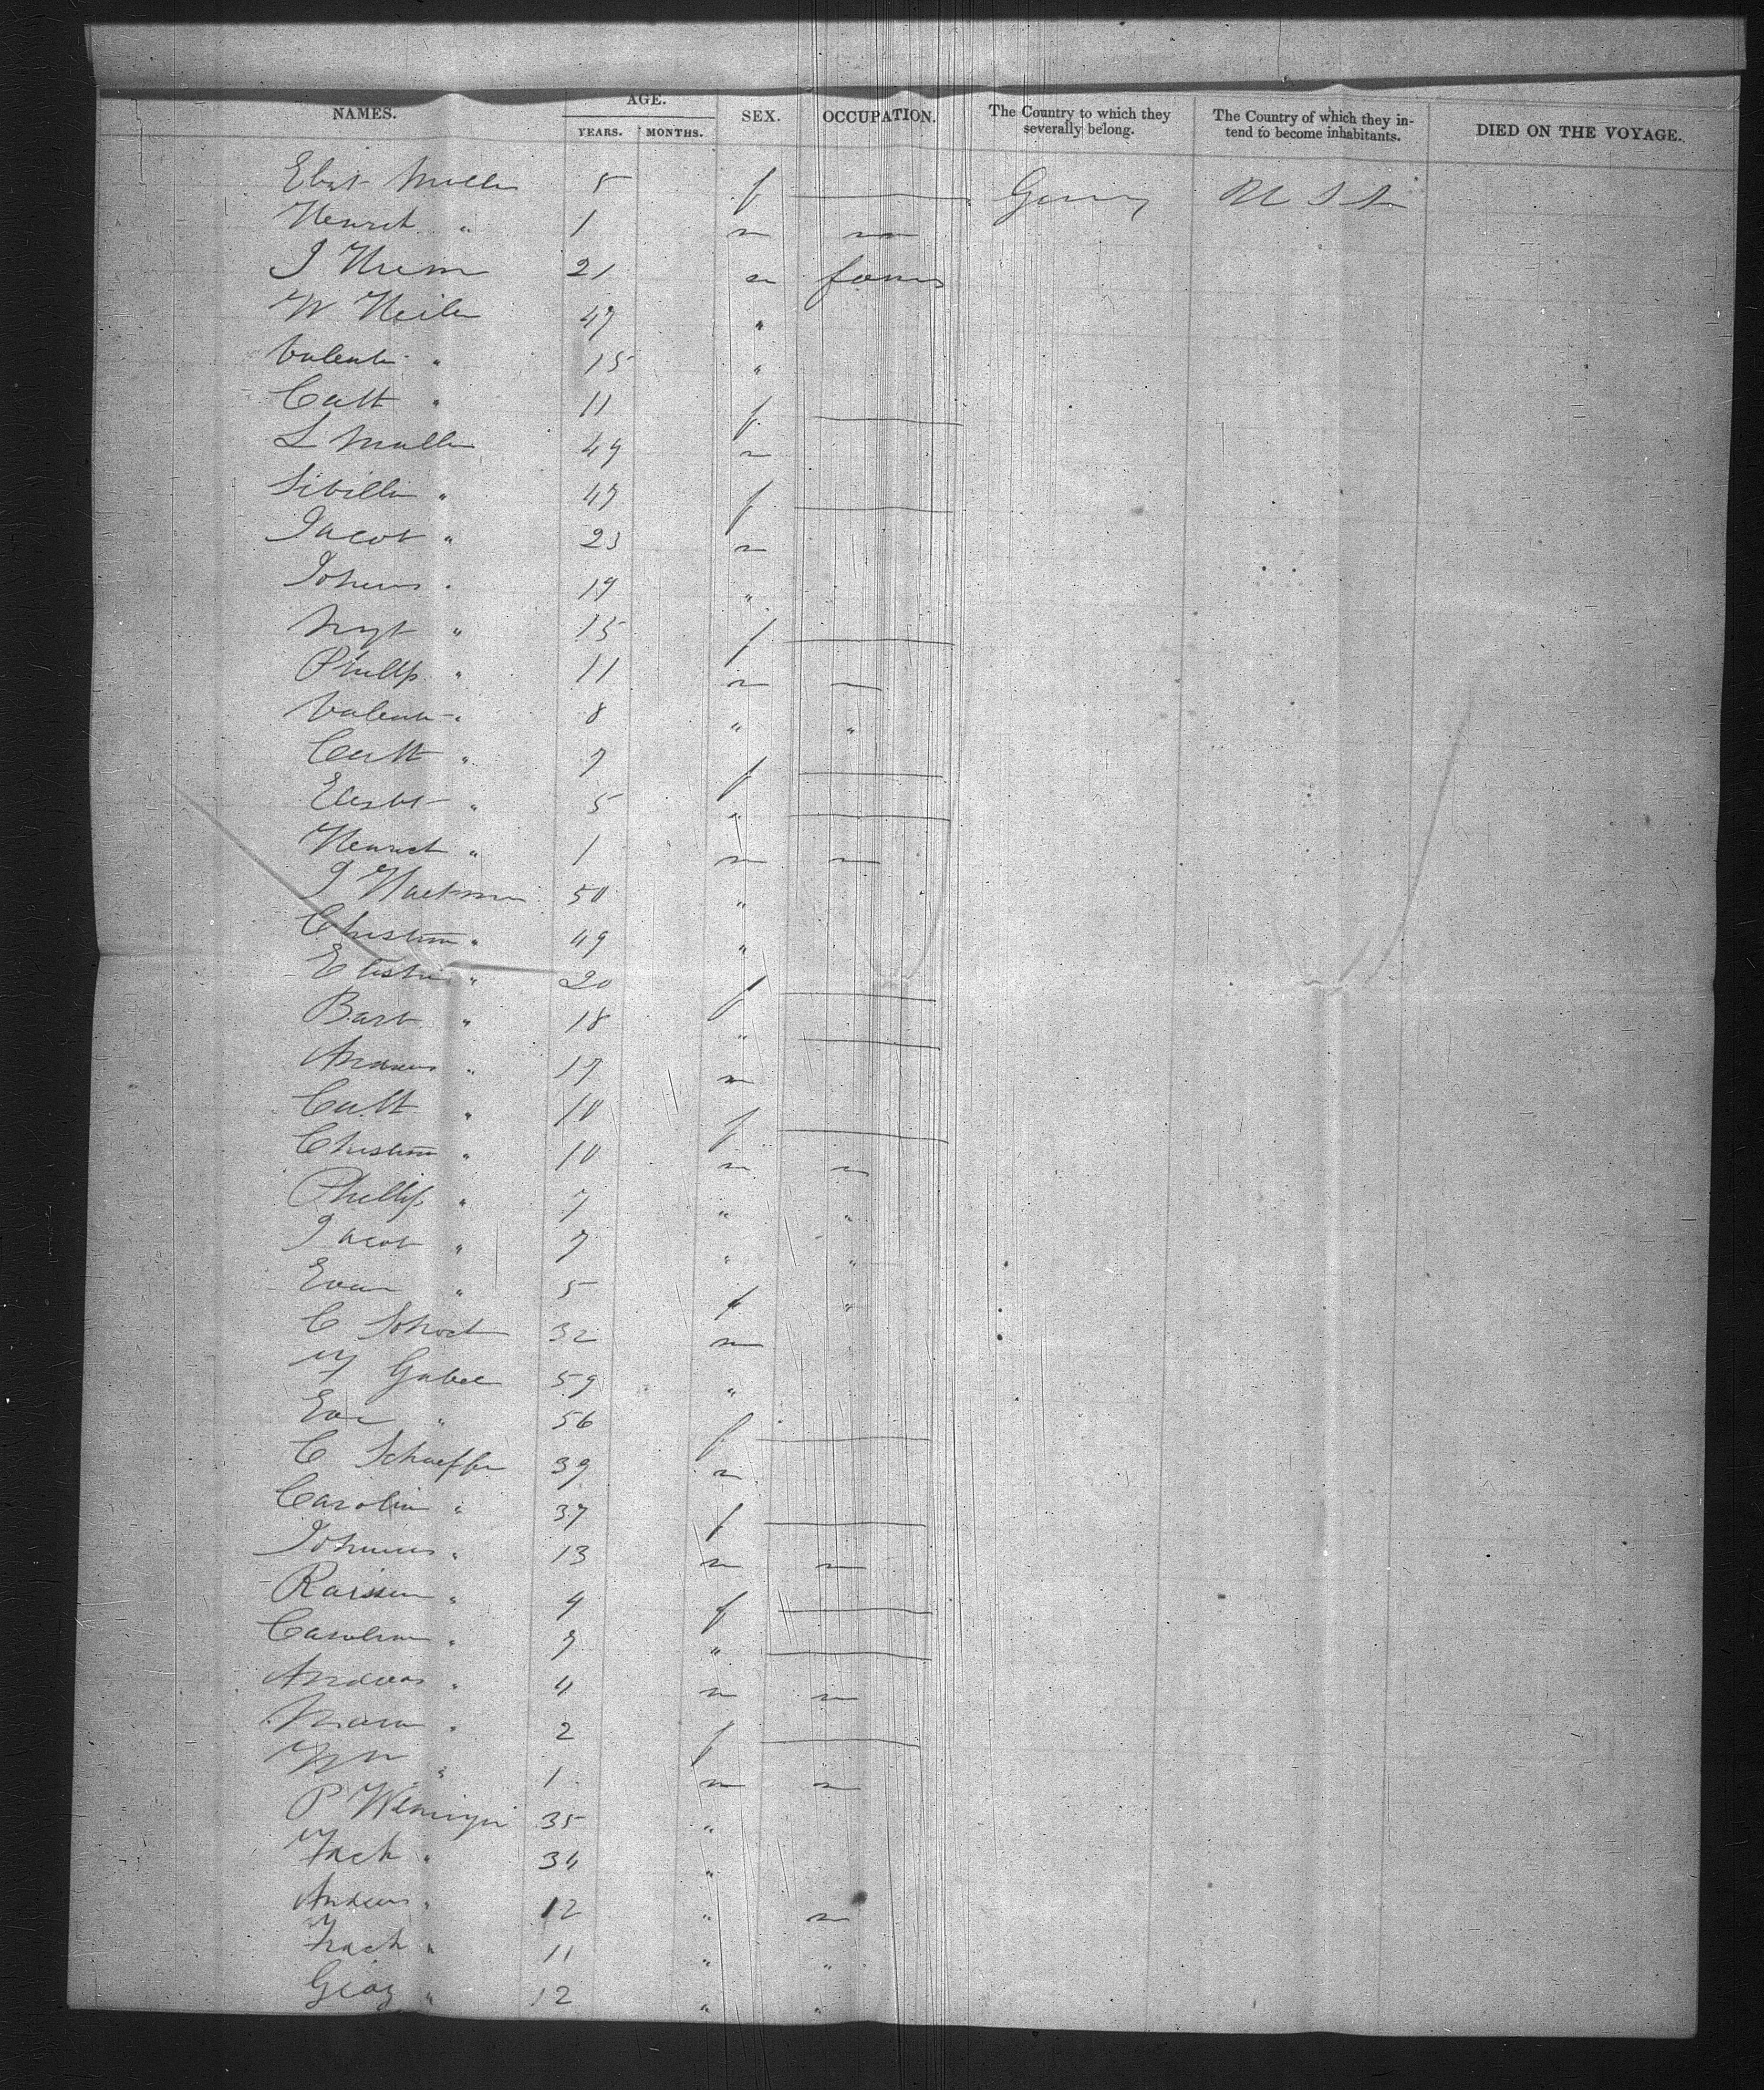 NAMES. AGE. YEARS. MONTHS. SEX. OCCUPATION. The Country to which they severally belong. The Country of which they intend to become inhabitants. DIED ON THE VOYAGE.
Elist Muller 5 f — Germy U S A
Henrich " 1 m m
J 21 m farmer
W Heiler 47 "
Valentn " 15 "
Cath " 11 f —
L Muller 49 m
Sibilla " 47 f —
Jacob " 23 m
Johnns " 19 "
Mrgt " 15 f —
Phillp " 11 m m
Valentn " 8 " "
Cath " 7 f —
Elisbt " 5 " —
Henrich " 1 m m
J Hartman 50 "
Christian " 49 "
" 20 f —
Barb " 18 " —
Andreas " 17 m
Cath " 10 f —
Christian " 10 m m
Phillip " 7 " "
Jacob " 7 " "
Eva " 5 f "
C Schoch 32 m
F Gabel 59 "
Eva " 56 f —
C Schaeffer 39 m
Carolin " 37 f —
Johannes " 13 m m
" 9 f —
Carolina " 7 " —
Andreas " 4 m m
Maria " 2 f —
Wm " 1 m m
P 35 "
" 34 "
Andreas " 12 " m
" 11 " "
Georg " 12 " "